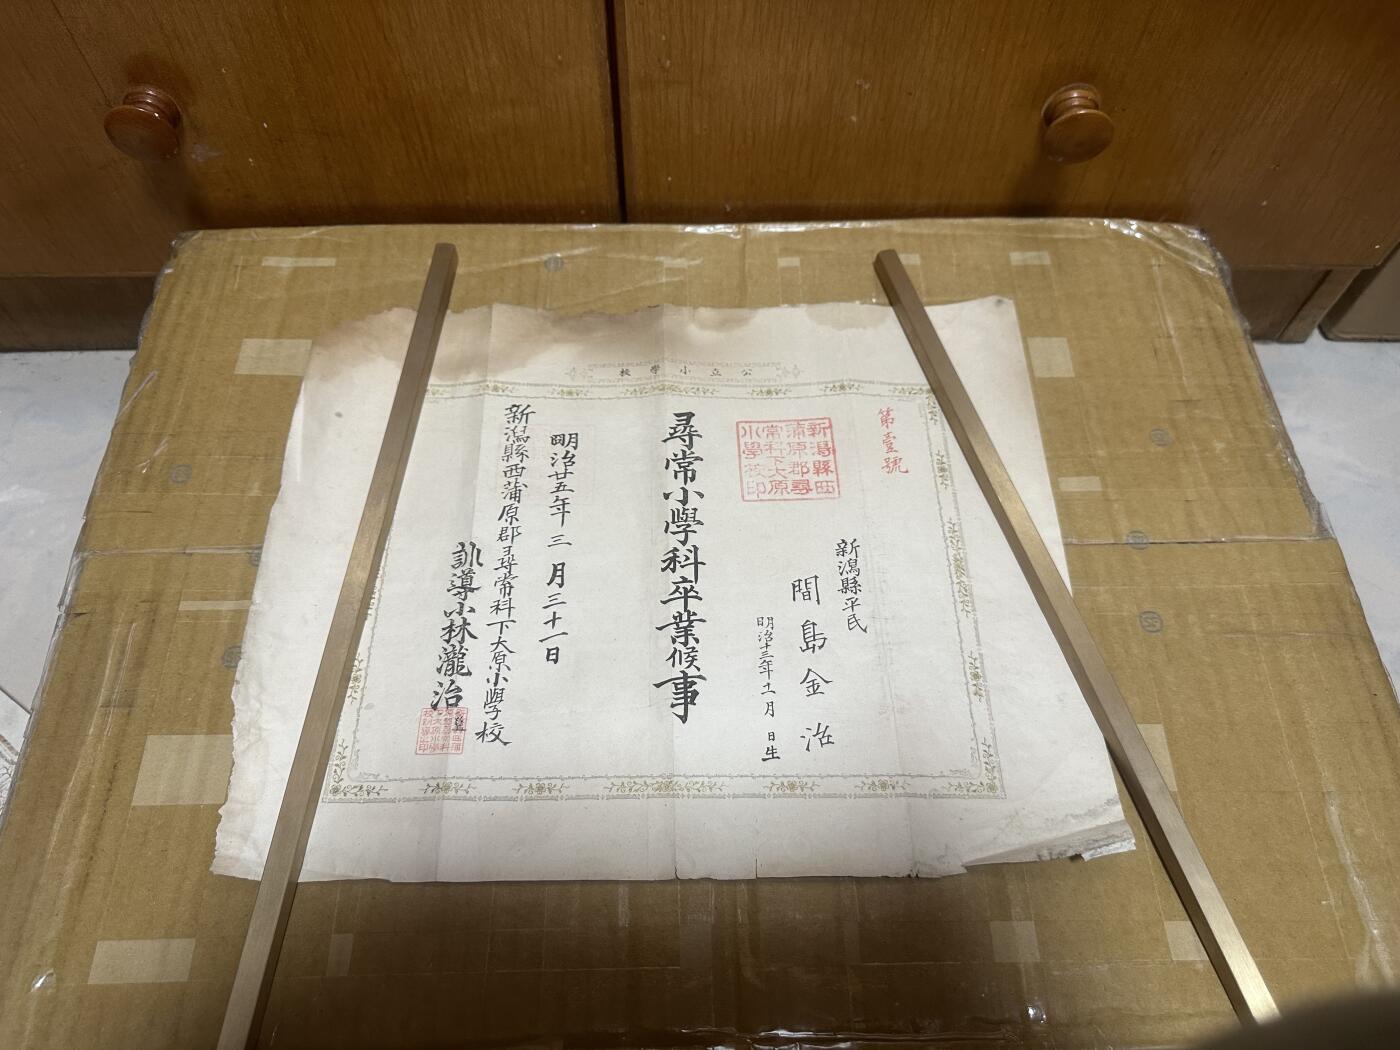 公立小學校
第壹號
新潟縣西
蒲原郡尋
常科大原
小學校印
新潟縣平民
間島金治
明治十三年十一月 日生
尋常小學科卒業候事
明治廿五年三月三十一日
新潟縣西蒲原郡尋常科下大原小學校
訓導小林瀧治